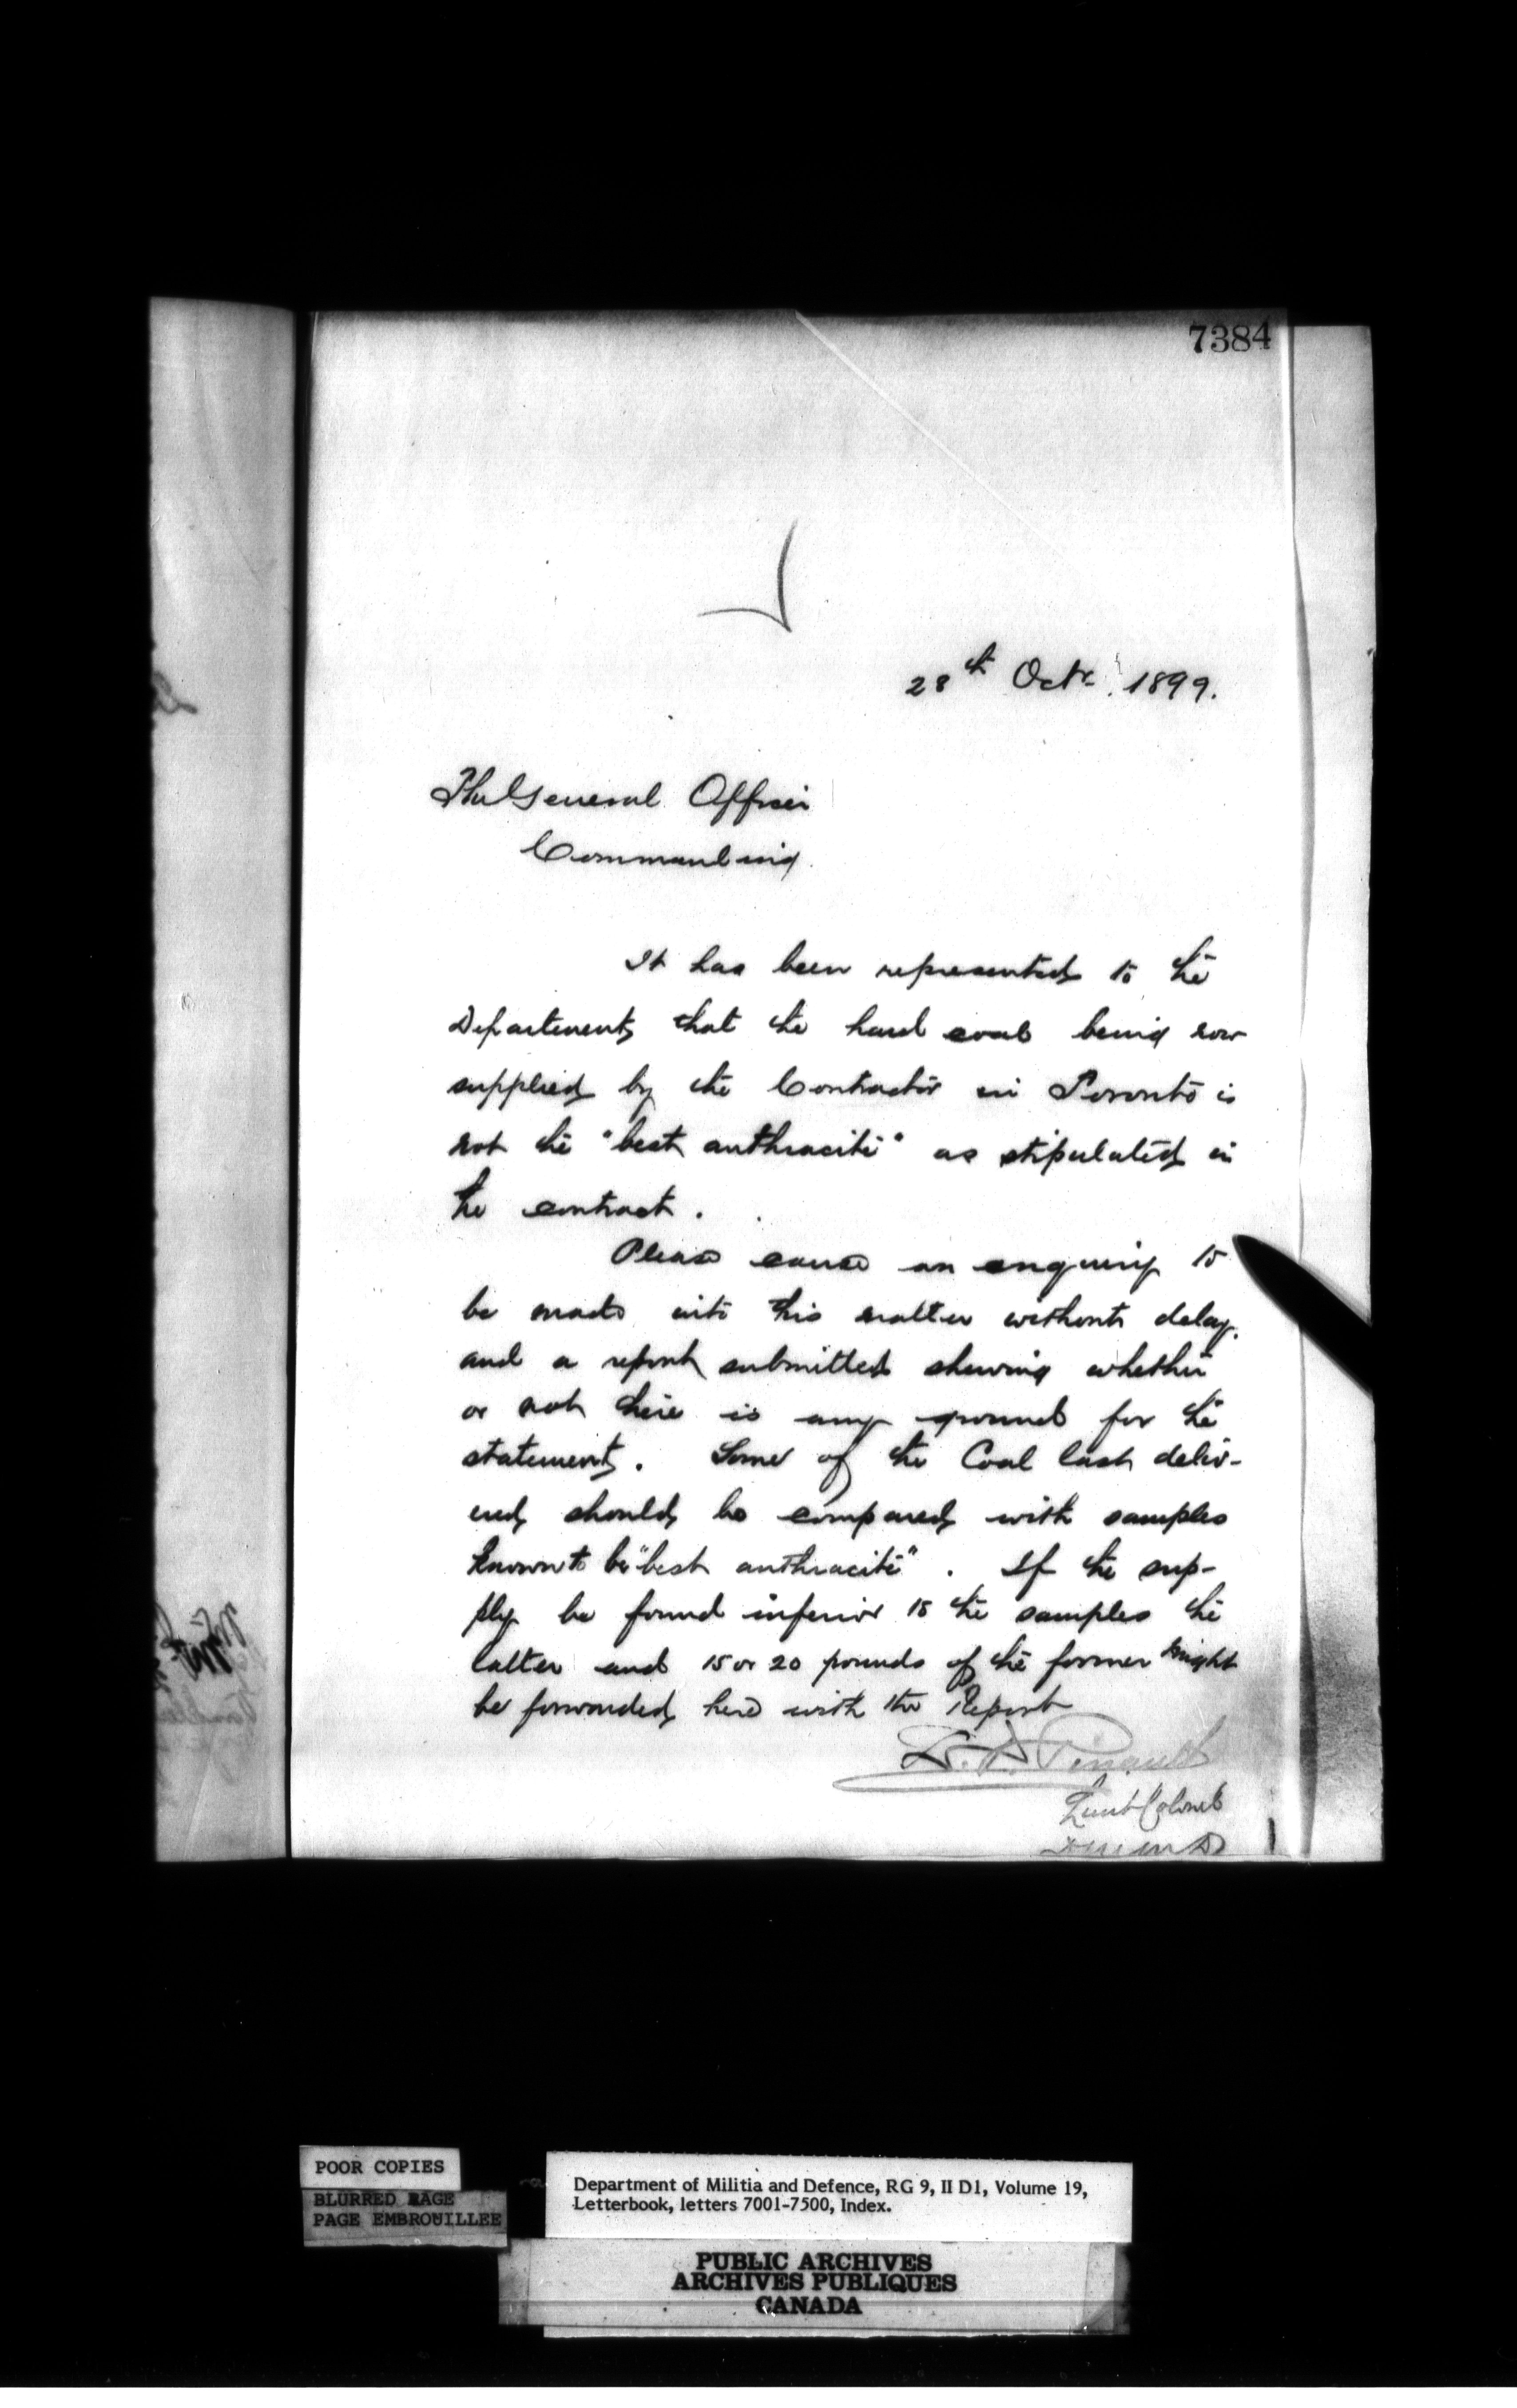 7384
28th Octr. 1899.
The General Officer
Commanding.
It has been represented to the
Department, that the hard coal being now
supplied by the Contractor in Toronto is
not the "best anthracite" as stipulated in
the contract.
Please cause an enquiry to
be made into this matter without delay,
and a report submitted shewing whether
or not there is any ground for the
statement. Some of the Coal last deliv-
ered, should be compared with samples
known to be "best anthracite". If the sup-
ply be found inferior to the samples the
latter and 15 or 20 pounds of the former might
be forwarded here with the Report
L. F. Pinault
Lieut Colonel
POOR COPIES
BLURRED PAGE
PAGE EMBROUILLEE
Department of Militia and Defence, RG 9, II D1, Volume 19,
Letterbook, letters 7001-7500, Index.
PUBLIC ARCHIVES
ARCHIVES PUBLIQUES
CANADA